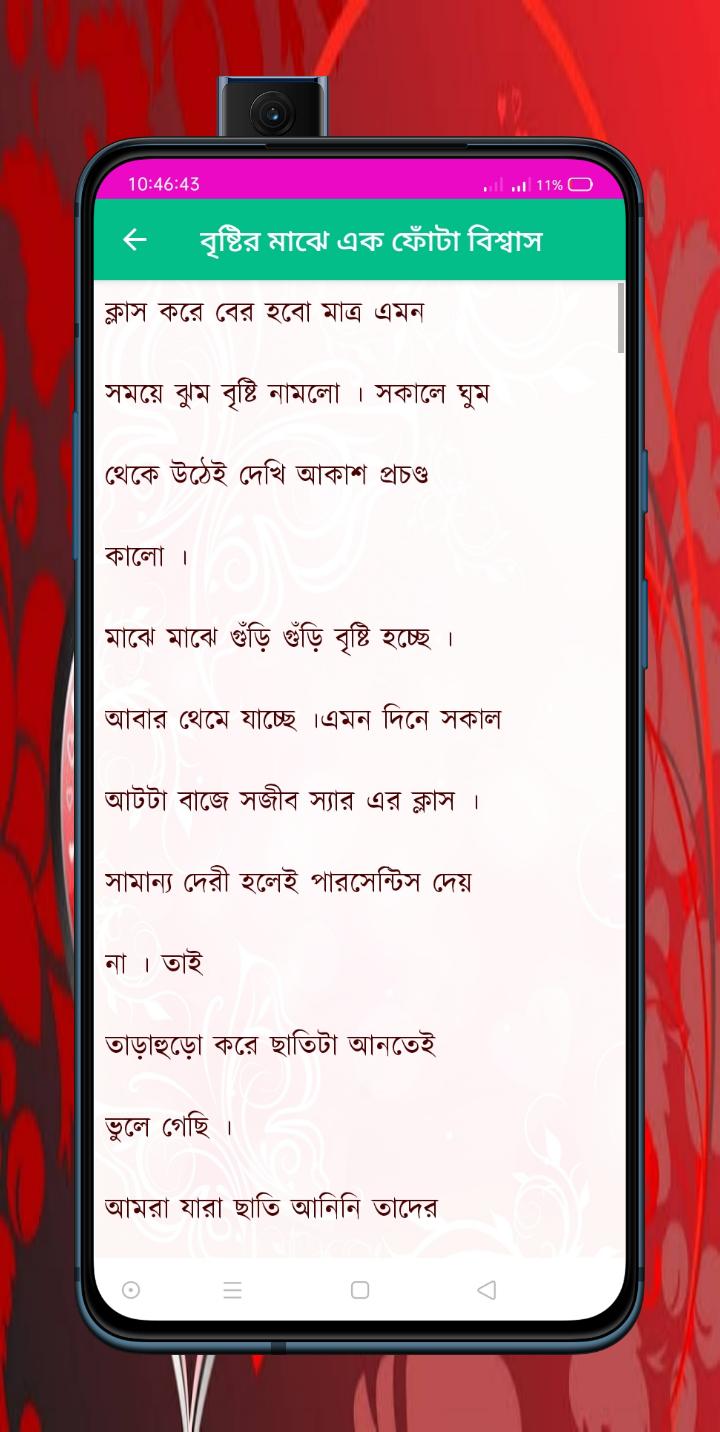 10:46:43
11%
বৃষ্টির মাঝে এক ফোঁটা বিশ্বাস
ক্লাস করে বের হবো মাত্র এমন
সময়ে ঝুম বৃষ্টি নামলো । সকালে ঘুম
থেকে উঠেই দেখি আকাশ প্রচণ্ড
কালো ।
মাঝে মাঝে গুঁড়ি গুঁড়ি বৃষ্টি হচ্ছে ।
আবার থেমে যাচ্ছে ।এমন দিনে সকাল
আটটা বাজে সজীব স্যার এর ক্লাস ।
সামান্য দেরী হলেই পারসেন্টিস দেয়
না । তাই
তাড়াহুড়ো করে ছাতিটা আনতেই
ভুলে গেছি ।
আমরা যারা ছাতি আনিনি তাদের